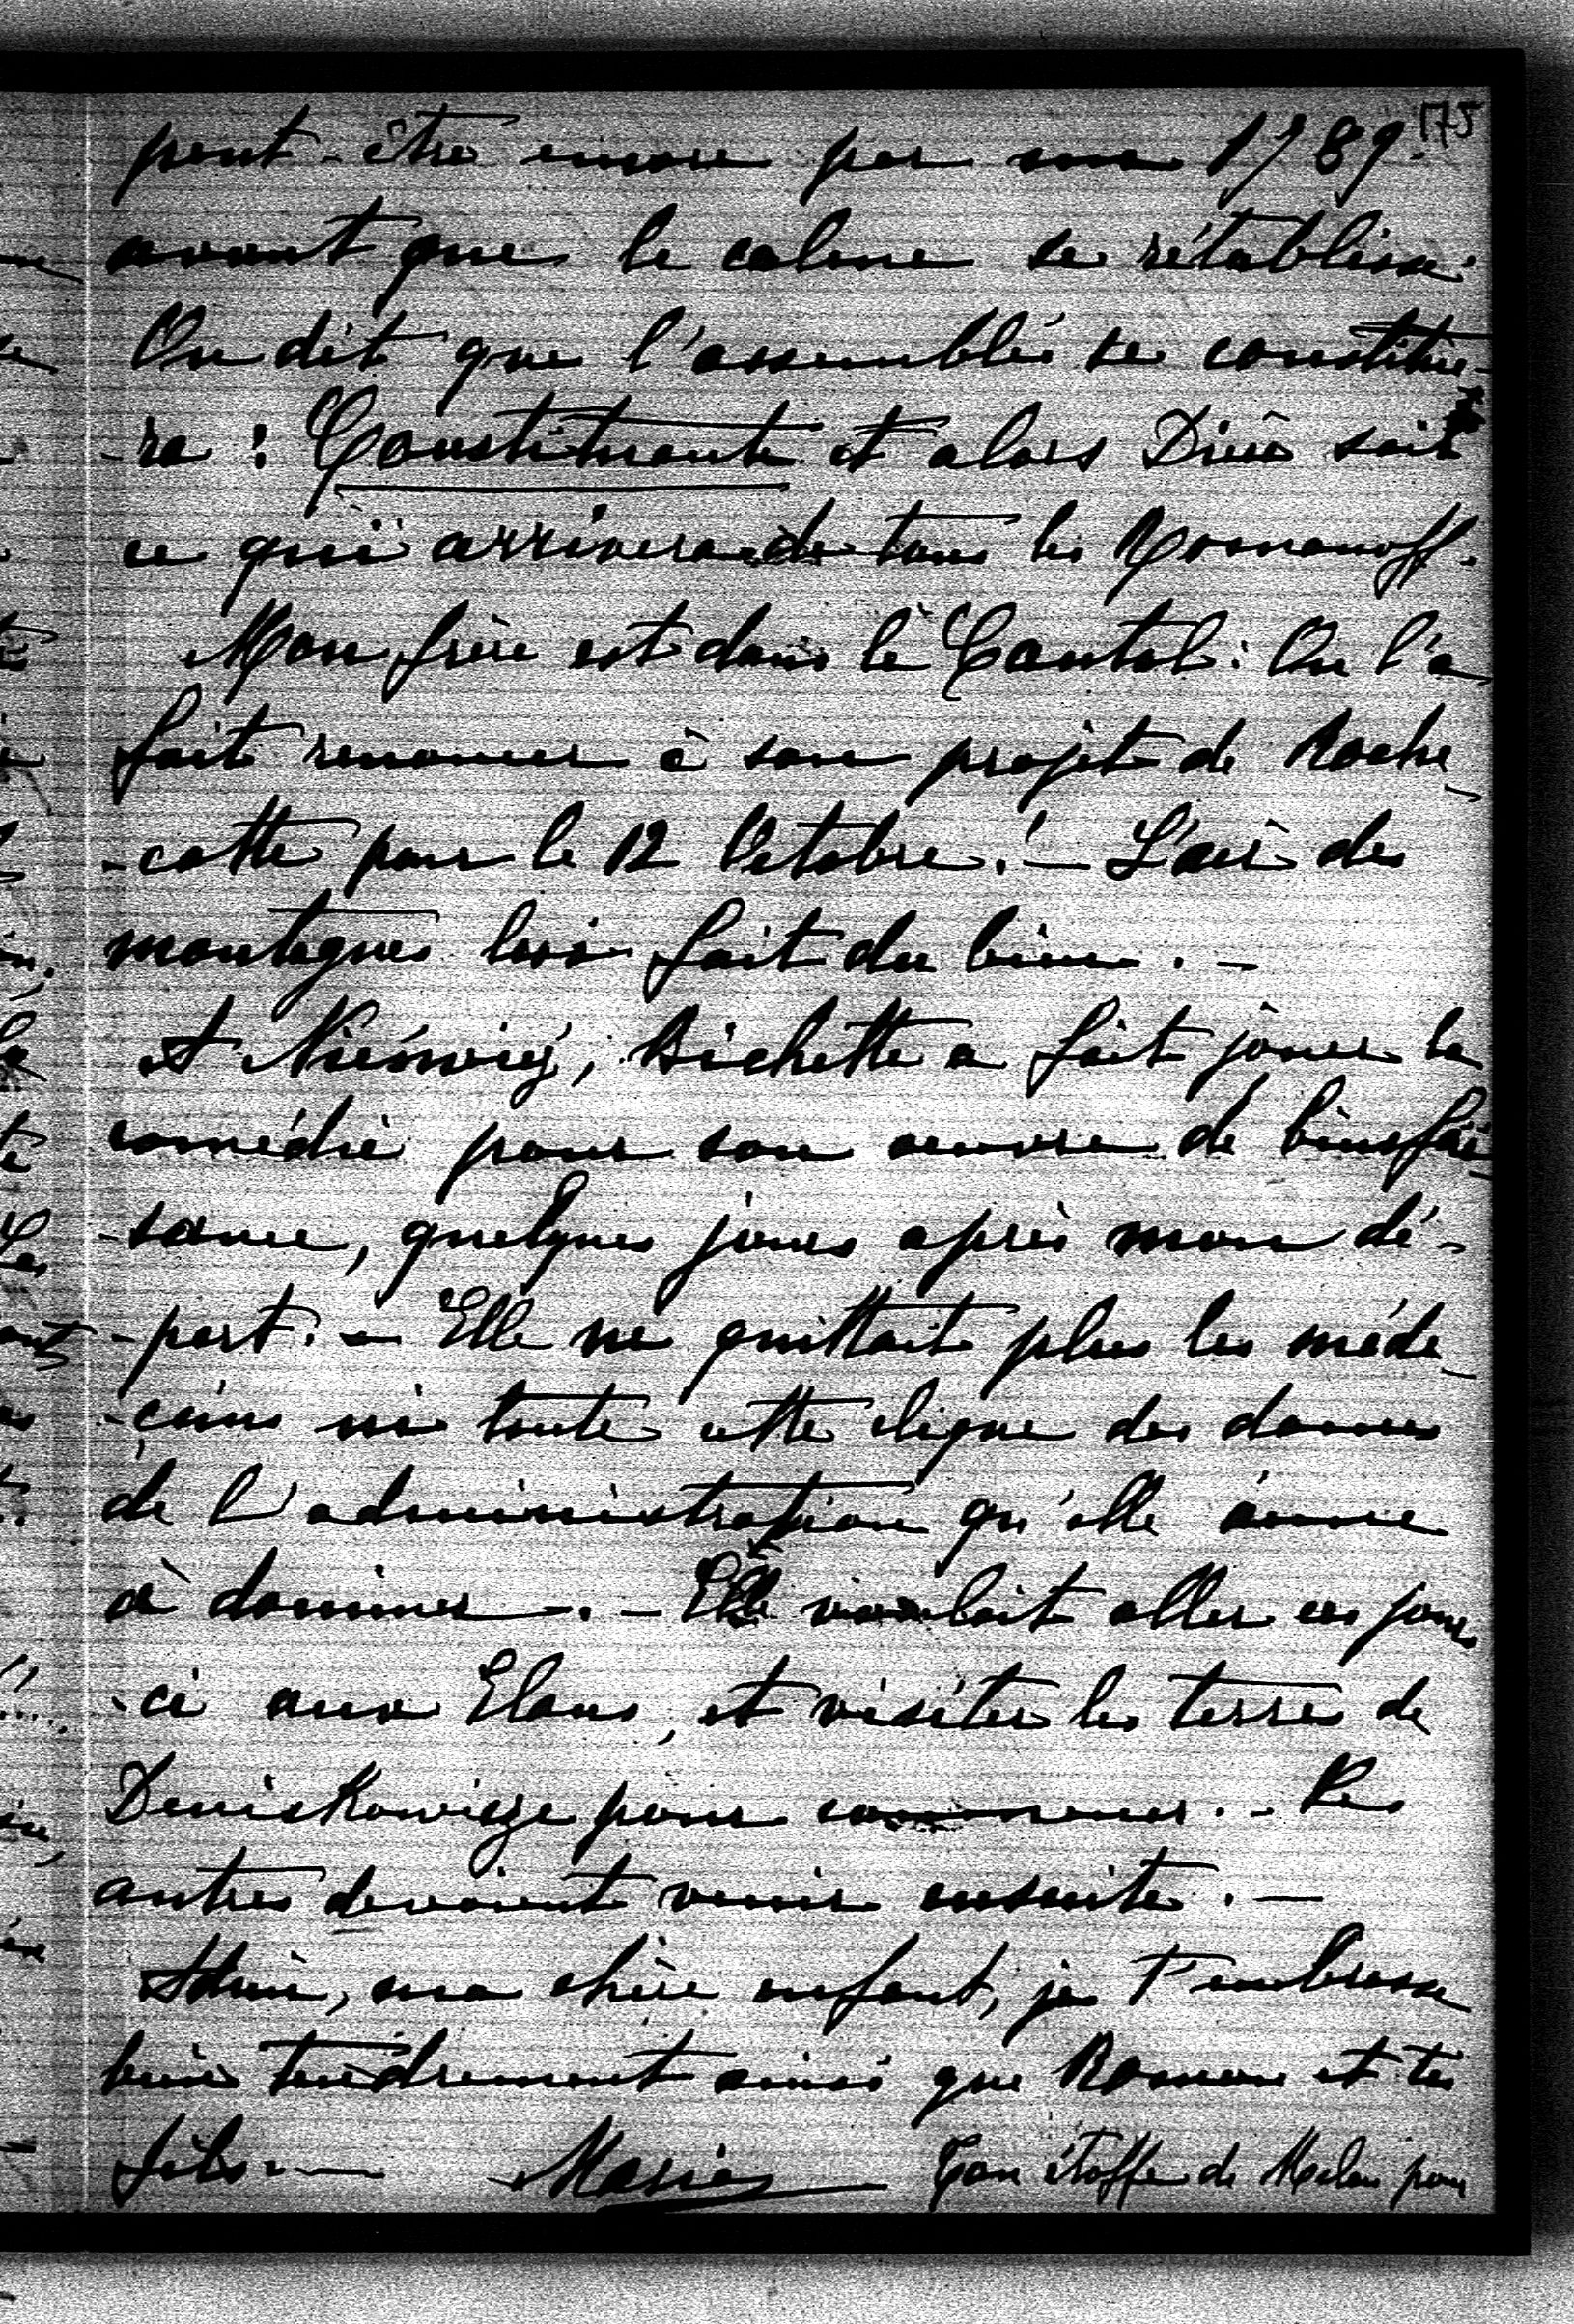 175
peut-être encore par une 1789.
avant que le calme se rétablisse.
On dit que l'assemblée se constitue-
-ra : Constituante et alors Dieu sait
ce qui arrivera de tous les Romanoff.
Mon frère est dans le Cantal : On l'a
fait renoncer à son projet de Roche-
-cotte pour le 12 Octobre ! — L'air des
montagnes lui fait du bien. —
A Nieswiez, Bichette a fait jouer la
comédie pour son œuvre de bienfai-
-sance, quelques jours après mon dé-
-part. — Elle ne quittait plus les méde-
-cins ni toute cette clique des dames
de l'administration qu'elle aime
à dominer. — Elle voulait aller ces jours
-ci aux Elans, et visiter les terres de
Deniskowicze pour commencer. — Les
autres devaient venir ensuite. —
Adieu, ma chère enfant, je t'embrasse
bien tendrement ainsi que Roman et tes
fils. — Marie Ton étoffe de Milan pour